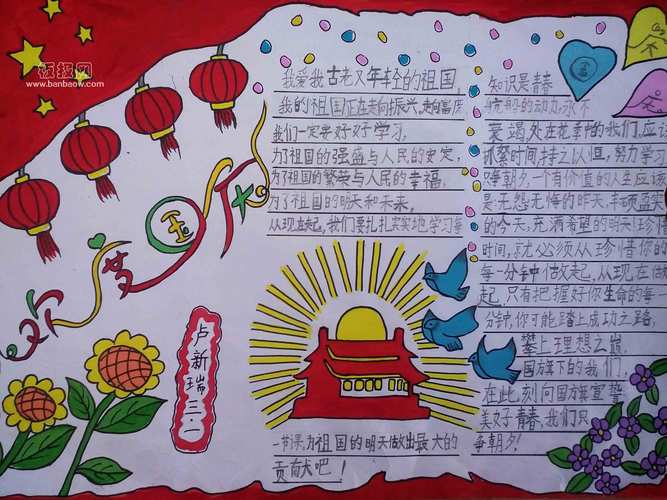 板报网
www.banbaow.com
欢度国庆
卢新瑞三.一
我爱我古老又年轻的祖国,
我的祖国正在走向振兴,走向富庶
我们一定要好好学习,
为了祖国的强盛与人民的安定,
为了祖国的繁荣与人民的幸福,
为了祖国的明天和未来,
从现在起,我们要扎扎实实地学习每
一节课,为祖国的明天做出最大的
贡献吧!
知识是青春
航船的动力,永不
衰竭处在花季的我们,应该
抓紧时间,持之以恒,努力学习
争朝夕,一个有价值的人生应该
是无怨无悔的昨天,丰硕盈实
的今天,充满希望的明天!珍惜
时间,就必须从珍惜你的
每一分钟做起,从现在做
起,只有把握好你生命的每一
分钟,你可能踏上成功之路,
攀上理想之巅.
国旗下的我们,
在此刻向国旗宣誓
美好青春,我们只
争朝夕!